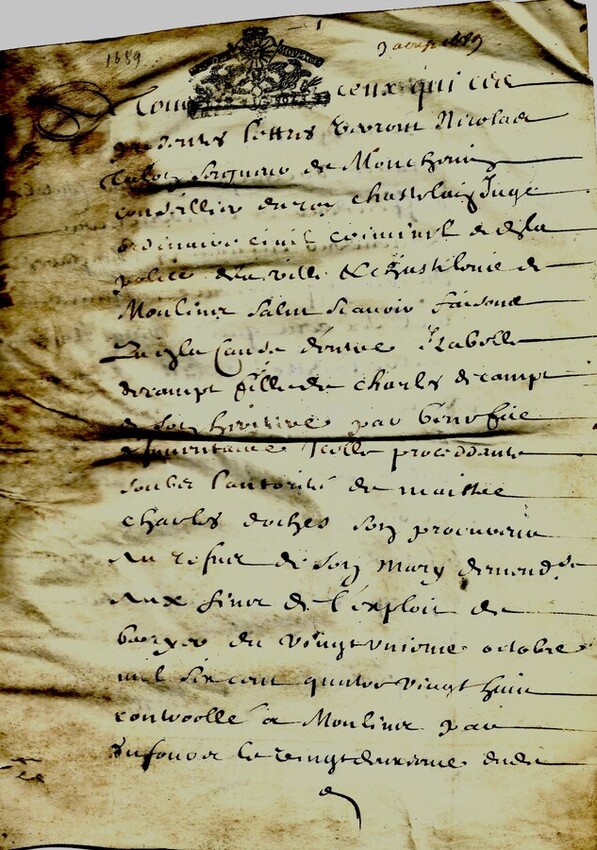 1689
3 avril 1689
A Tous ceux qui ces
presentes lettres verront Nicolas
seigneur de
conseillier du roy chastelain Juge
ordinaire civil criminel & de la
police de la ville & chastelenie de
Moulins salut scavoir faisons
Qu'en la Cause d'entre Izabelle
decamps fille de charles decamps
& son heritiere par benefice
d'inventaire Icelle proceddante
soubz l'autorité de maistre
charles son procureur
au refus de son mary demand.se
aux fins de l'exploit de
du vingt uniesme octobre
mil six cent quatre vingt huict
controollé a Moulins par
le vingt deuxiesme dudit